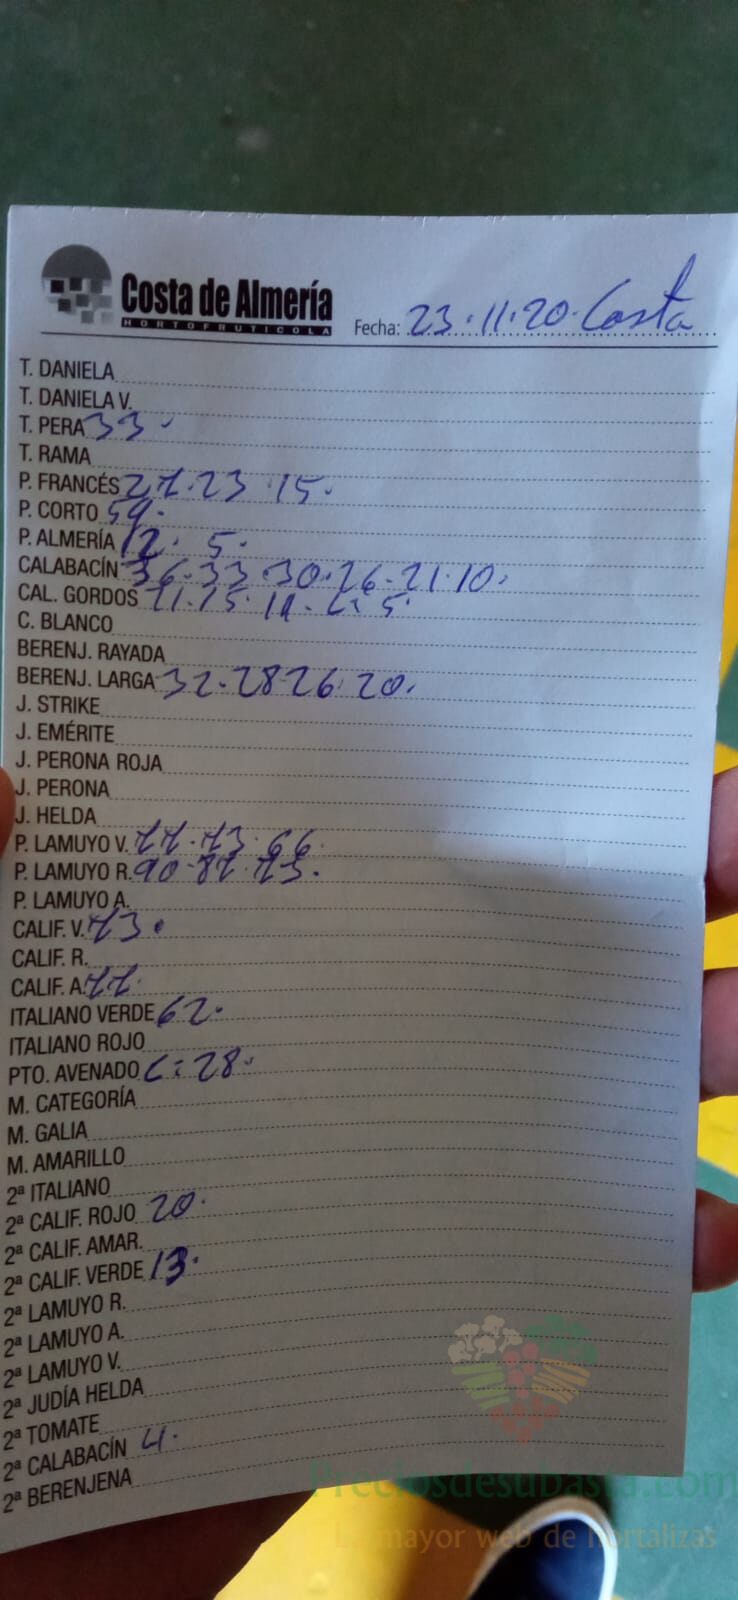 Costa de Almería
HORTOFRUTICOLA
Fecha: 23.11.20. Costa
T. DANIELA
T. DANIELA V.
T. PERA 33.
T. RAMA
P. FRANCÉS 27.23.15.
P. CORTO 59.
P. ALMERÍA 12. 5.
CALABACÍN 36.33.30.26.21.10.
CAL. GORDOS 15. 5.
C. BLANCO
BERENJ. RAYADA
BERENJ. LARGA 32.28 26 20.
J. STRIKE
J. EMÉRITE
J. PERONA ROJA
J. PERONA
J. HELDA
P. LAMUYO V. 77.73.66.
P. LAMUYO R. 90-87.75.
P. LAMUYO A.
CALIF. V. 73.
CALIF. R.
CALIF. A. 77.
ITALIANO VERDE 62.
ITALIANO ROJO
PTO. AVENADO C: 28.
M. CATEGORÍA
M. GALIA
M. AMARILLO
2ª ITALIANO
2ª CALIF. ROJO 20.
2ª CALIF. AMAR.
2ª CALIF. VERDE 13.
2ª LAMUYO R.
2ª LAMUYO A.
2ª LAMUYO V.
2ª JUDÍA HELDA
2ª TOMATE
2ª CALABACÍN 4.
2ª BERENJENA
Preciosdesubasta.com
La mayor web de hortalizas